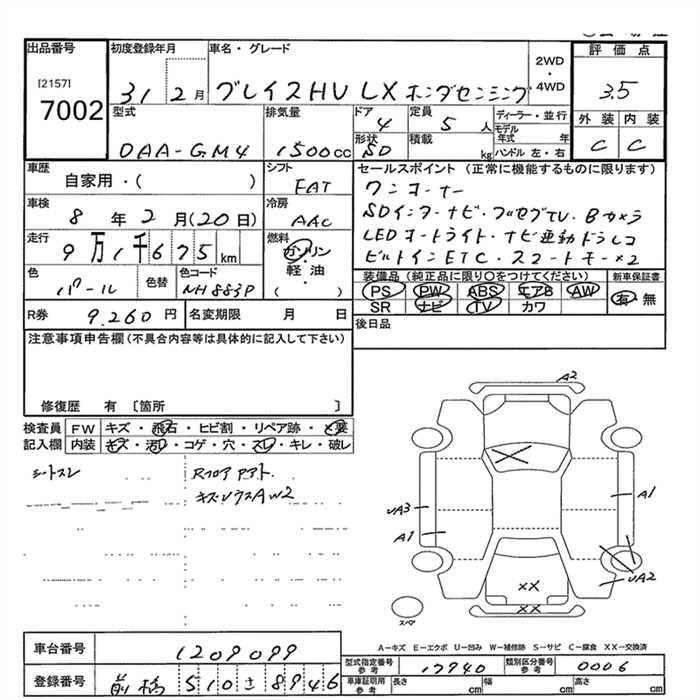 出品番号
[2157]
7002
初度登録年月
31 2月
車名・グレード
グレイスHV LX ホンダセンシング
2WD
・
4WD
評価点
3.5
外装 内装
C C
型式
DAA-GM4
排気量
1500cc
ドア
4
形状
SD
定員
5人
積載
kg
ディーラー・並行
モデル年式 年
ハンドル 左・右
車歴
自家用・( )
シフト
FAT
車検
8年2月(20日)
冷房
AAC
走行
9万1千675km
燃料
ガソリン
・
軽油
( )
色
パール
色替
色コード
NH883P
セールスポイント(正常に機能するものに限ります)
ワンオーナー
SDインターナビ・フルセグTV・Bカメラ
LEDオートライト・ナビ連動ドラレコ
ビルトインETC・スマートキー×2
装備品(純正品に限り○をつけてください)
PS PW ABS エアB AW
SR ナビ TV カワ
新車保証書
有・無
R券 9,260円
名変期限 月 日
後日品
注意事項申告欄(不具合内容等は具体的に記入して下さい)
修復歴 有〔箇所 〕
検査員
記入欄
FW キズ・飛石・ヒビ割・リペア跡・
内装 キズ・汚レ・コゲ・穴・スレ・キレ・破レ
シートスレ
Rフロアアト
A2
A1
UA3
A1
UA2
XX
XX
スペア
A-キズ E-エクボ U-凹み W-補修跡 S-サビ C-腐食 XX-交換済
車台番号 1209099
登録番号 前橋 510 さ 8946
型式指定番号 参考 17940
類別区分番号 参考 0006
車庫証明用 参考 長さ cm 幅 cm 高さ cm